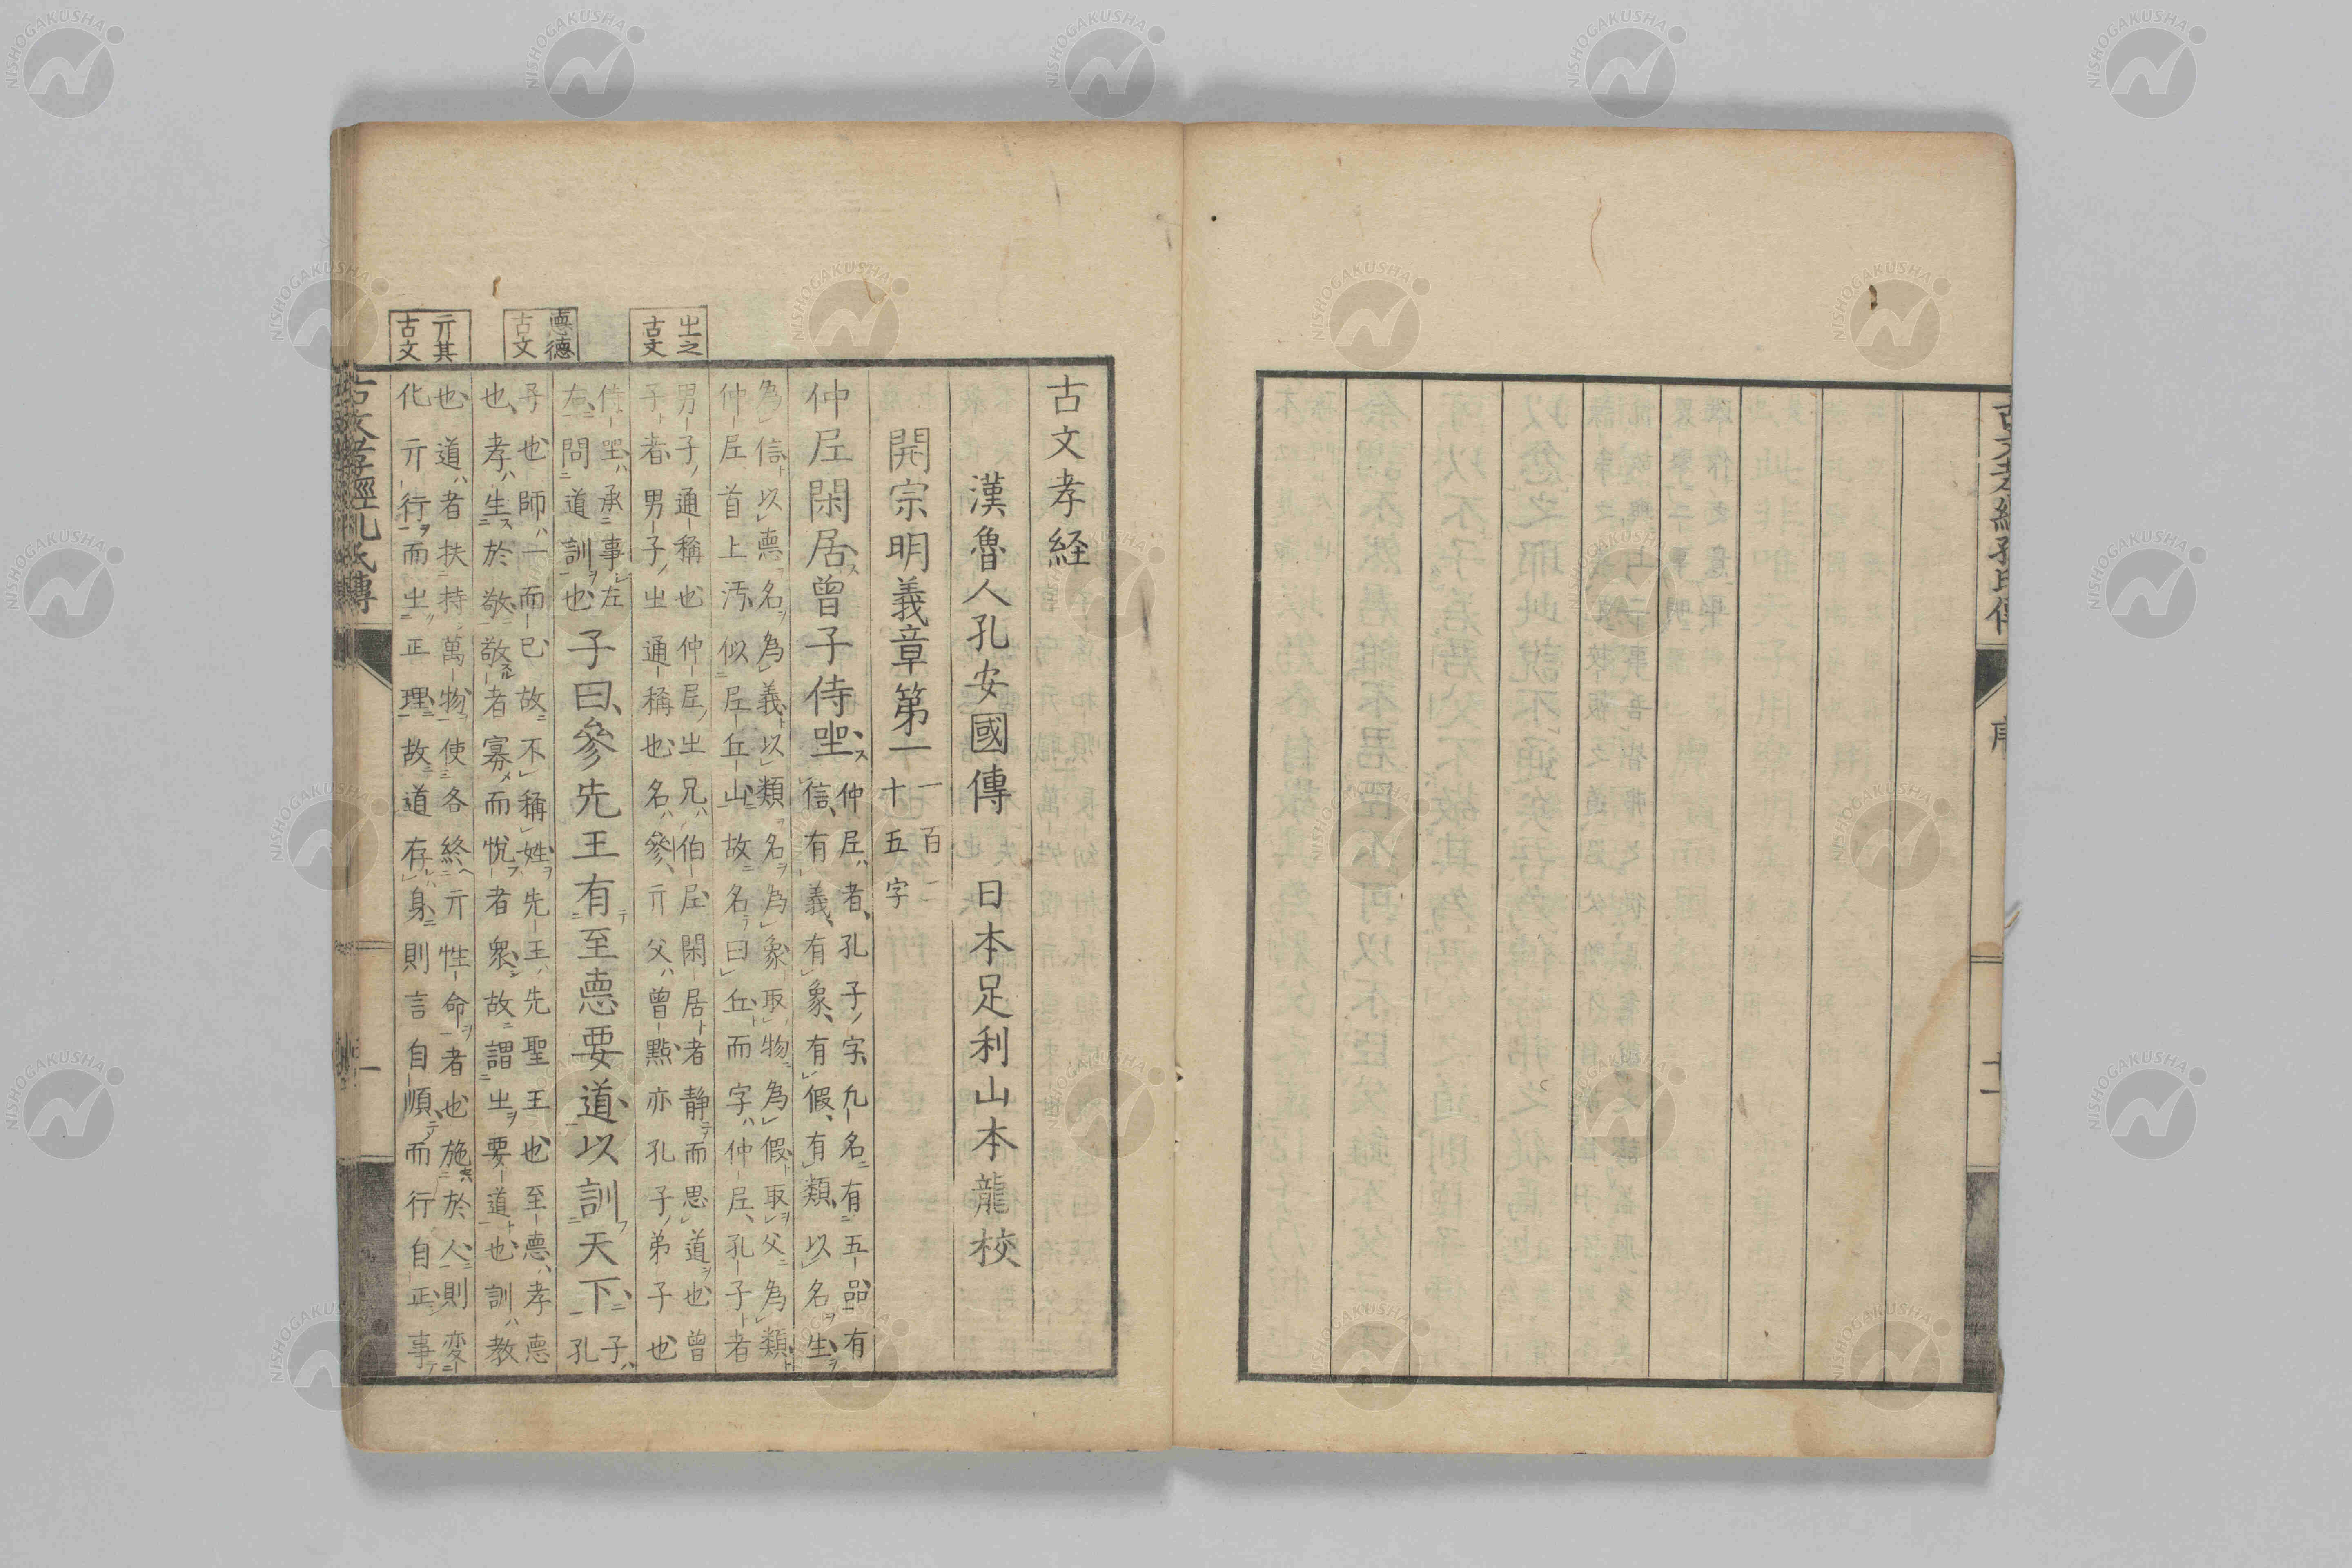 古文孝經孔氏傳
序
十一
㞢之
古文
悳德
古文
亓其
古文
古文孝経
漢魯人孔安國傳　日本足利山本龍校
開宗明義章第一
一百一
十五字
仲㞾閑居曾子侍坐
仲㞾者孔子字凢名有五品有
信有義有象有假有類以名生
為信以悳名為義以類名為象取物為假取父為類
仲㞾首上汚似㞾丘山故名曰丘而字仲㞾孔子者
男子通稱也仲㞾㞢兄伯㞾閑居者静而思道也曾
子者男子㞢通稱也名參亓父曾點亦孔子弟子也
侍坐承事左
右問道訓也
子曰參先王有至悳要道以訓天下
子
孔
子也師一而已故不稱姓先王先聖王也至悳孝悳
也孝生於敬敬者寡而悅者衆故謂㞢要道也訓教
也道者扶持萬物使各終亓性命者也施於人則変
化亓行而㞢正理故道存身則言自順而行自正事
古文孝經孔氏傳
一
NISHOGAKUSHA